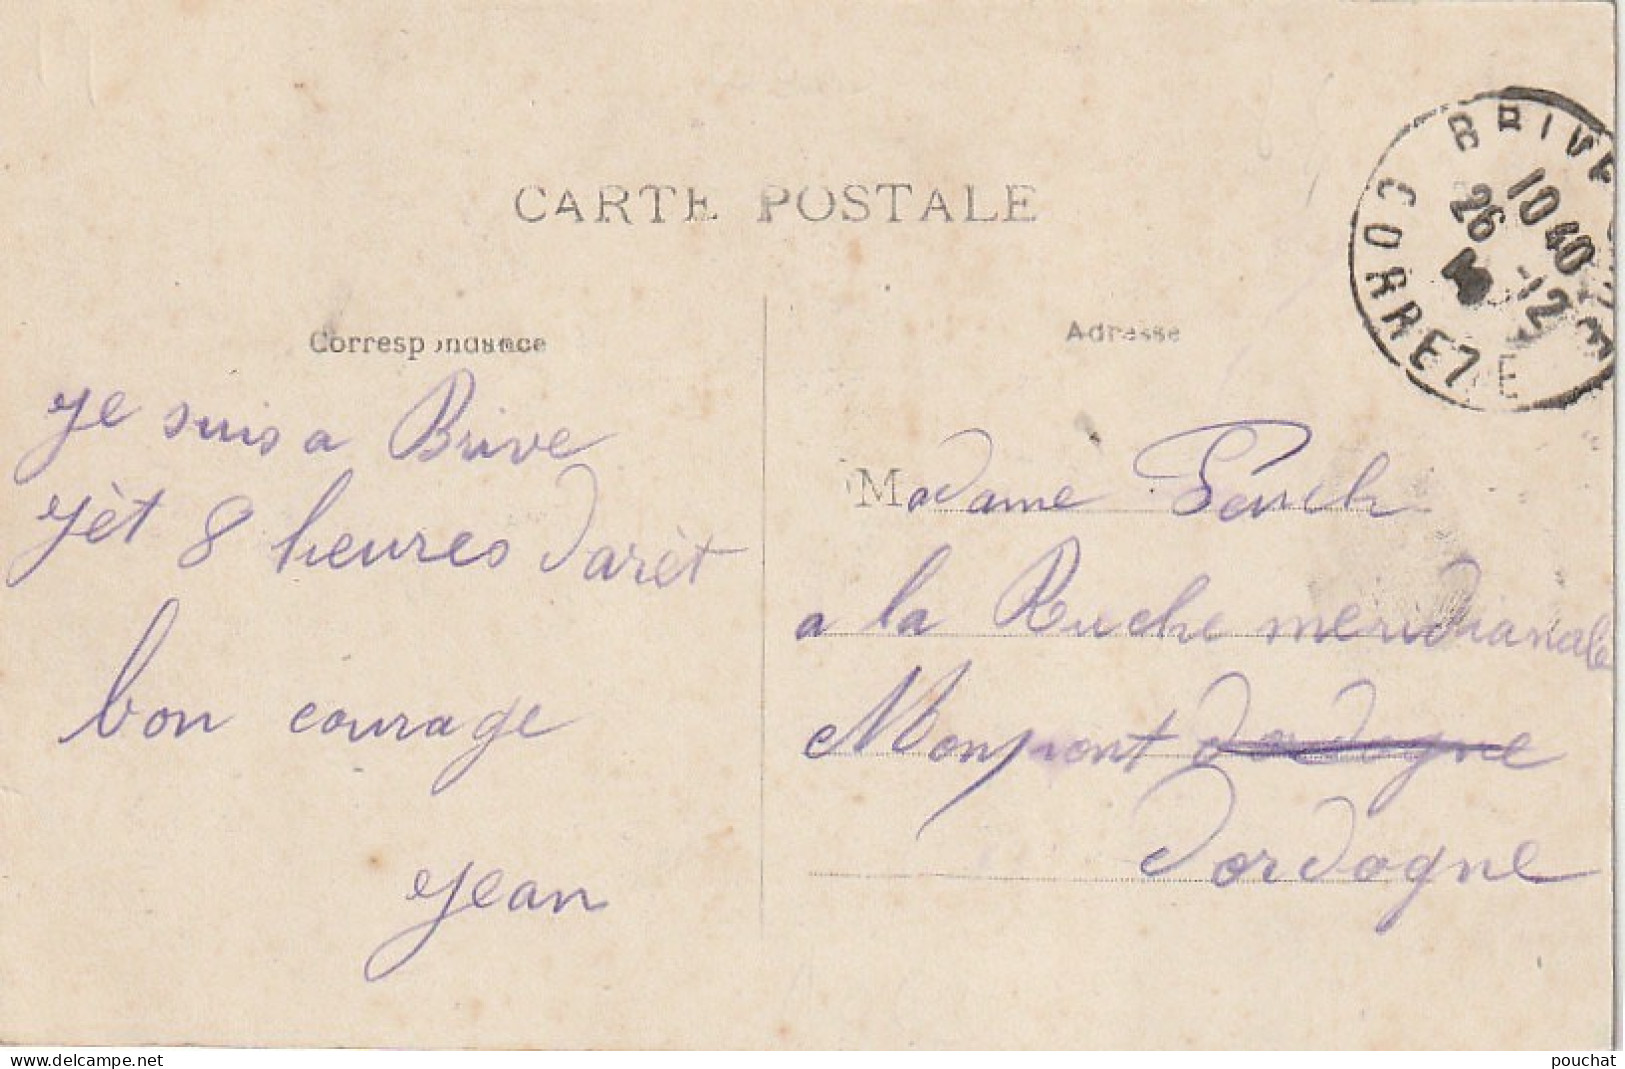 CARTE POSTALE
Correspondance
je suis a Brive
jèt 8 heures darèt
bon courage
jean
Adresse
BRIVE
10 40
26 -12
CORREZE
Madame
a la Ruche meridianale
Monpont dordogne
Dordogne
www.delcampe.net
pouchat